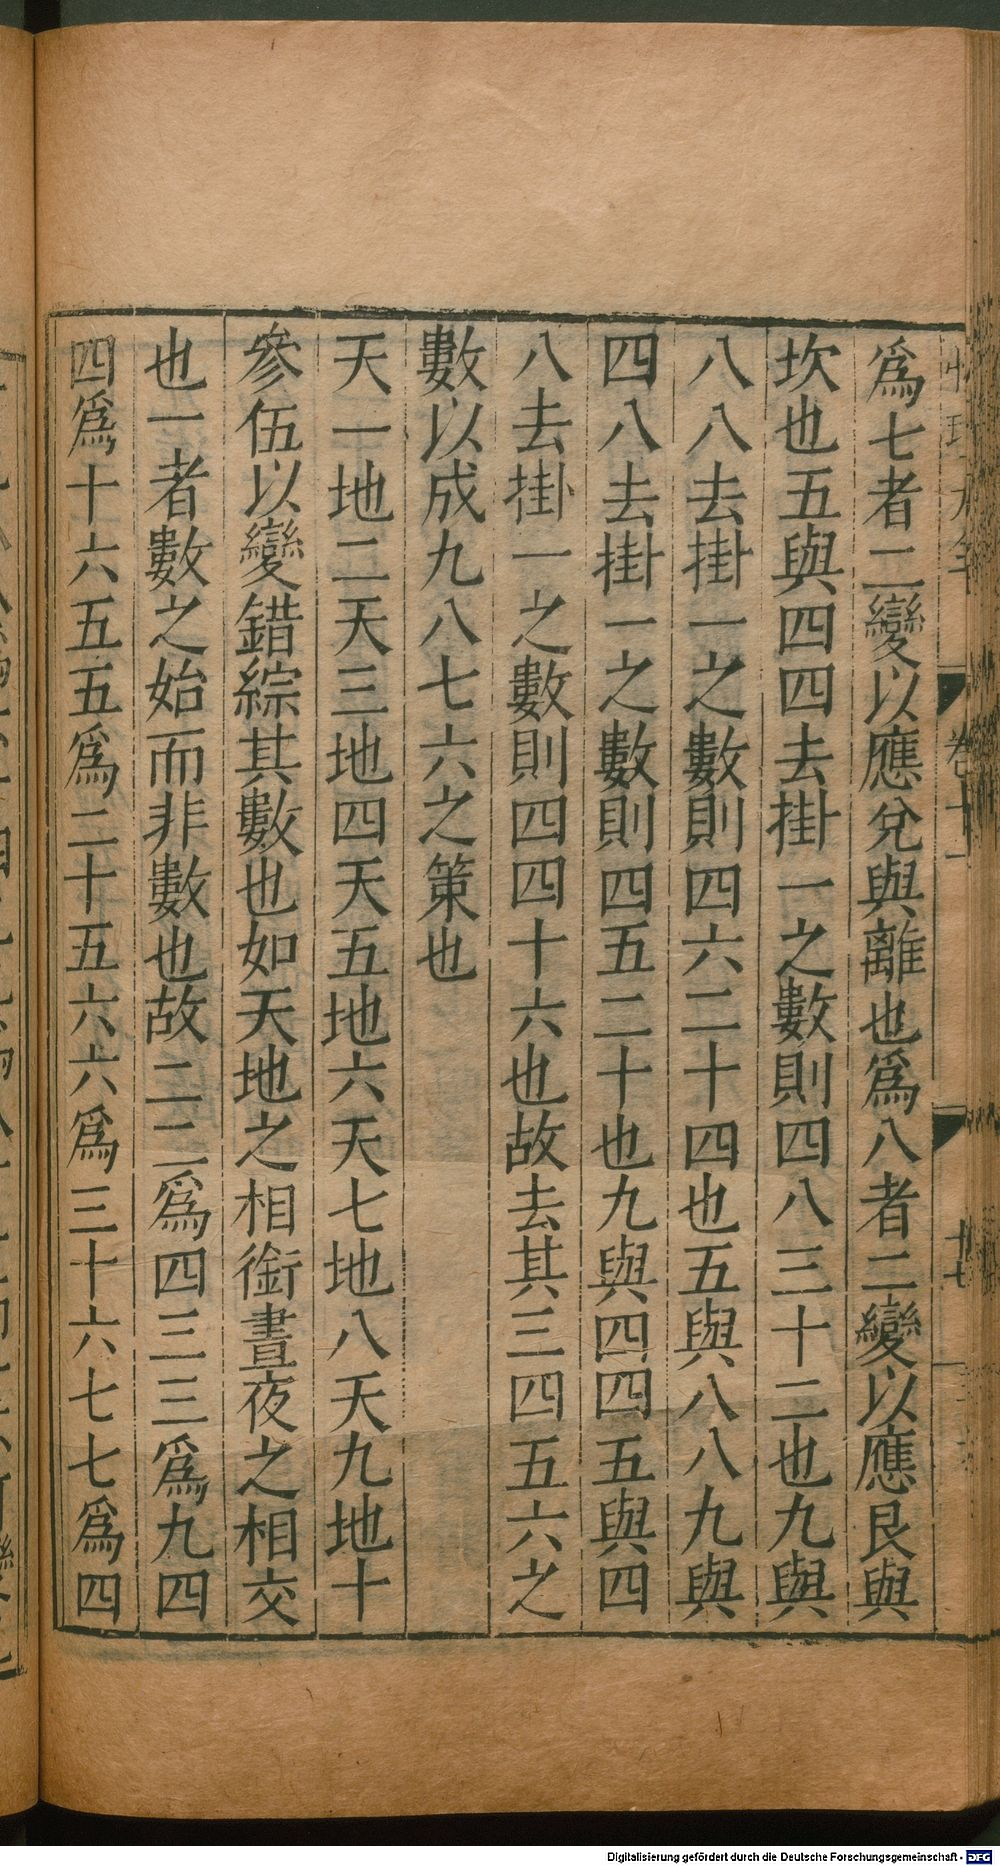 爲七者二變以應兌與離也爲八者二變以應艮與
坎也五與四四去掛一之數則四八三十二也九與
八八去掛一之數則四六二十四也五與八八九與
四八去掛一之數則四五二十也九與四四五與四
八去掛一之數則四四十六也故去其三四五六之
數以成九八七六之策也
天一地二天三地四天五地六天七地八天九地十
參伍以變錯綜其數也如天地之相銜晝夜之相交
也一者數之始而非數也故二二爲四三三爲九四
四爲十六五五爲二十五六六爲三十六七七爲四
卷十一
十七
Digitalisierung gefördert durch die Deutsche Forschungsgemeinschaft - DFG